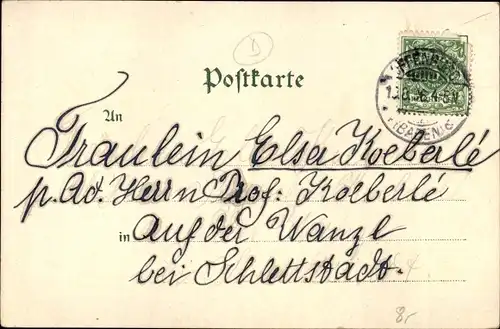 D
Postkarte
OFFENBURG
(BADEN)
An
Fräulein Elsa Koeberlé
p. Ad. Herrn Prof: Koeberlé
in Auf der Wanzl
bei Schlettstadt.
8,-